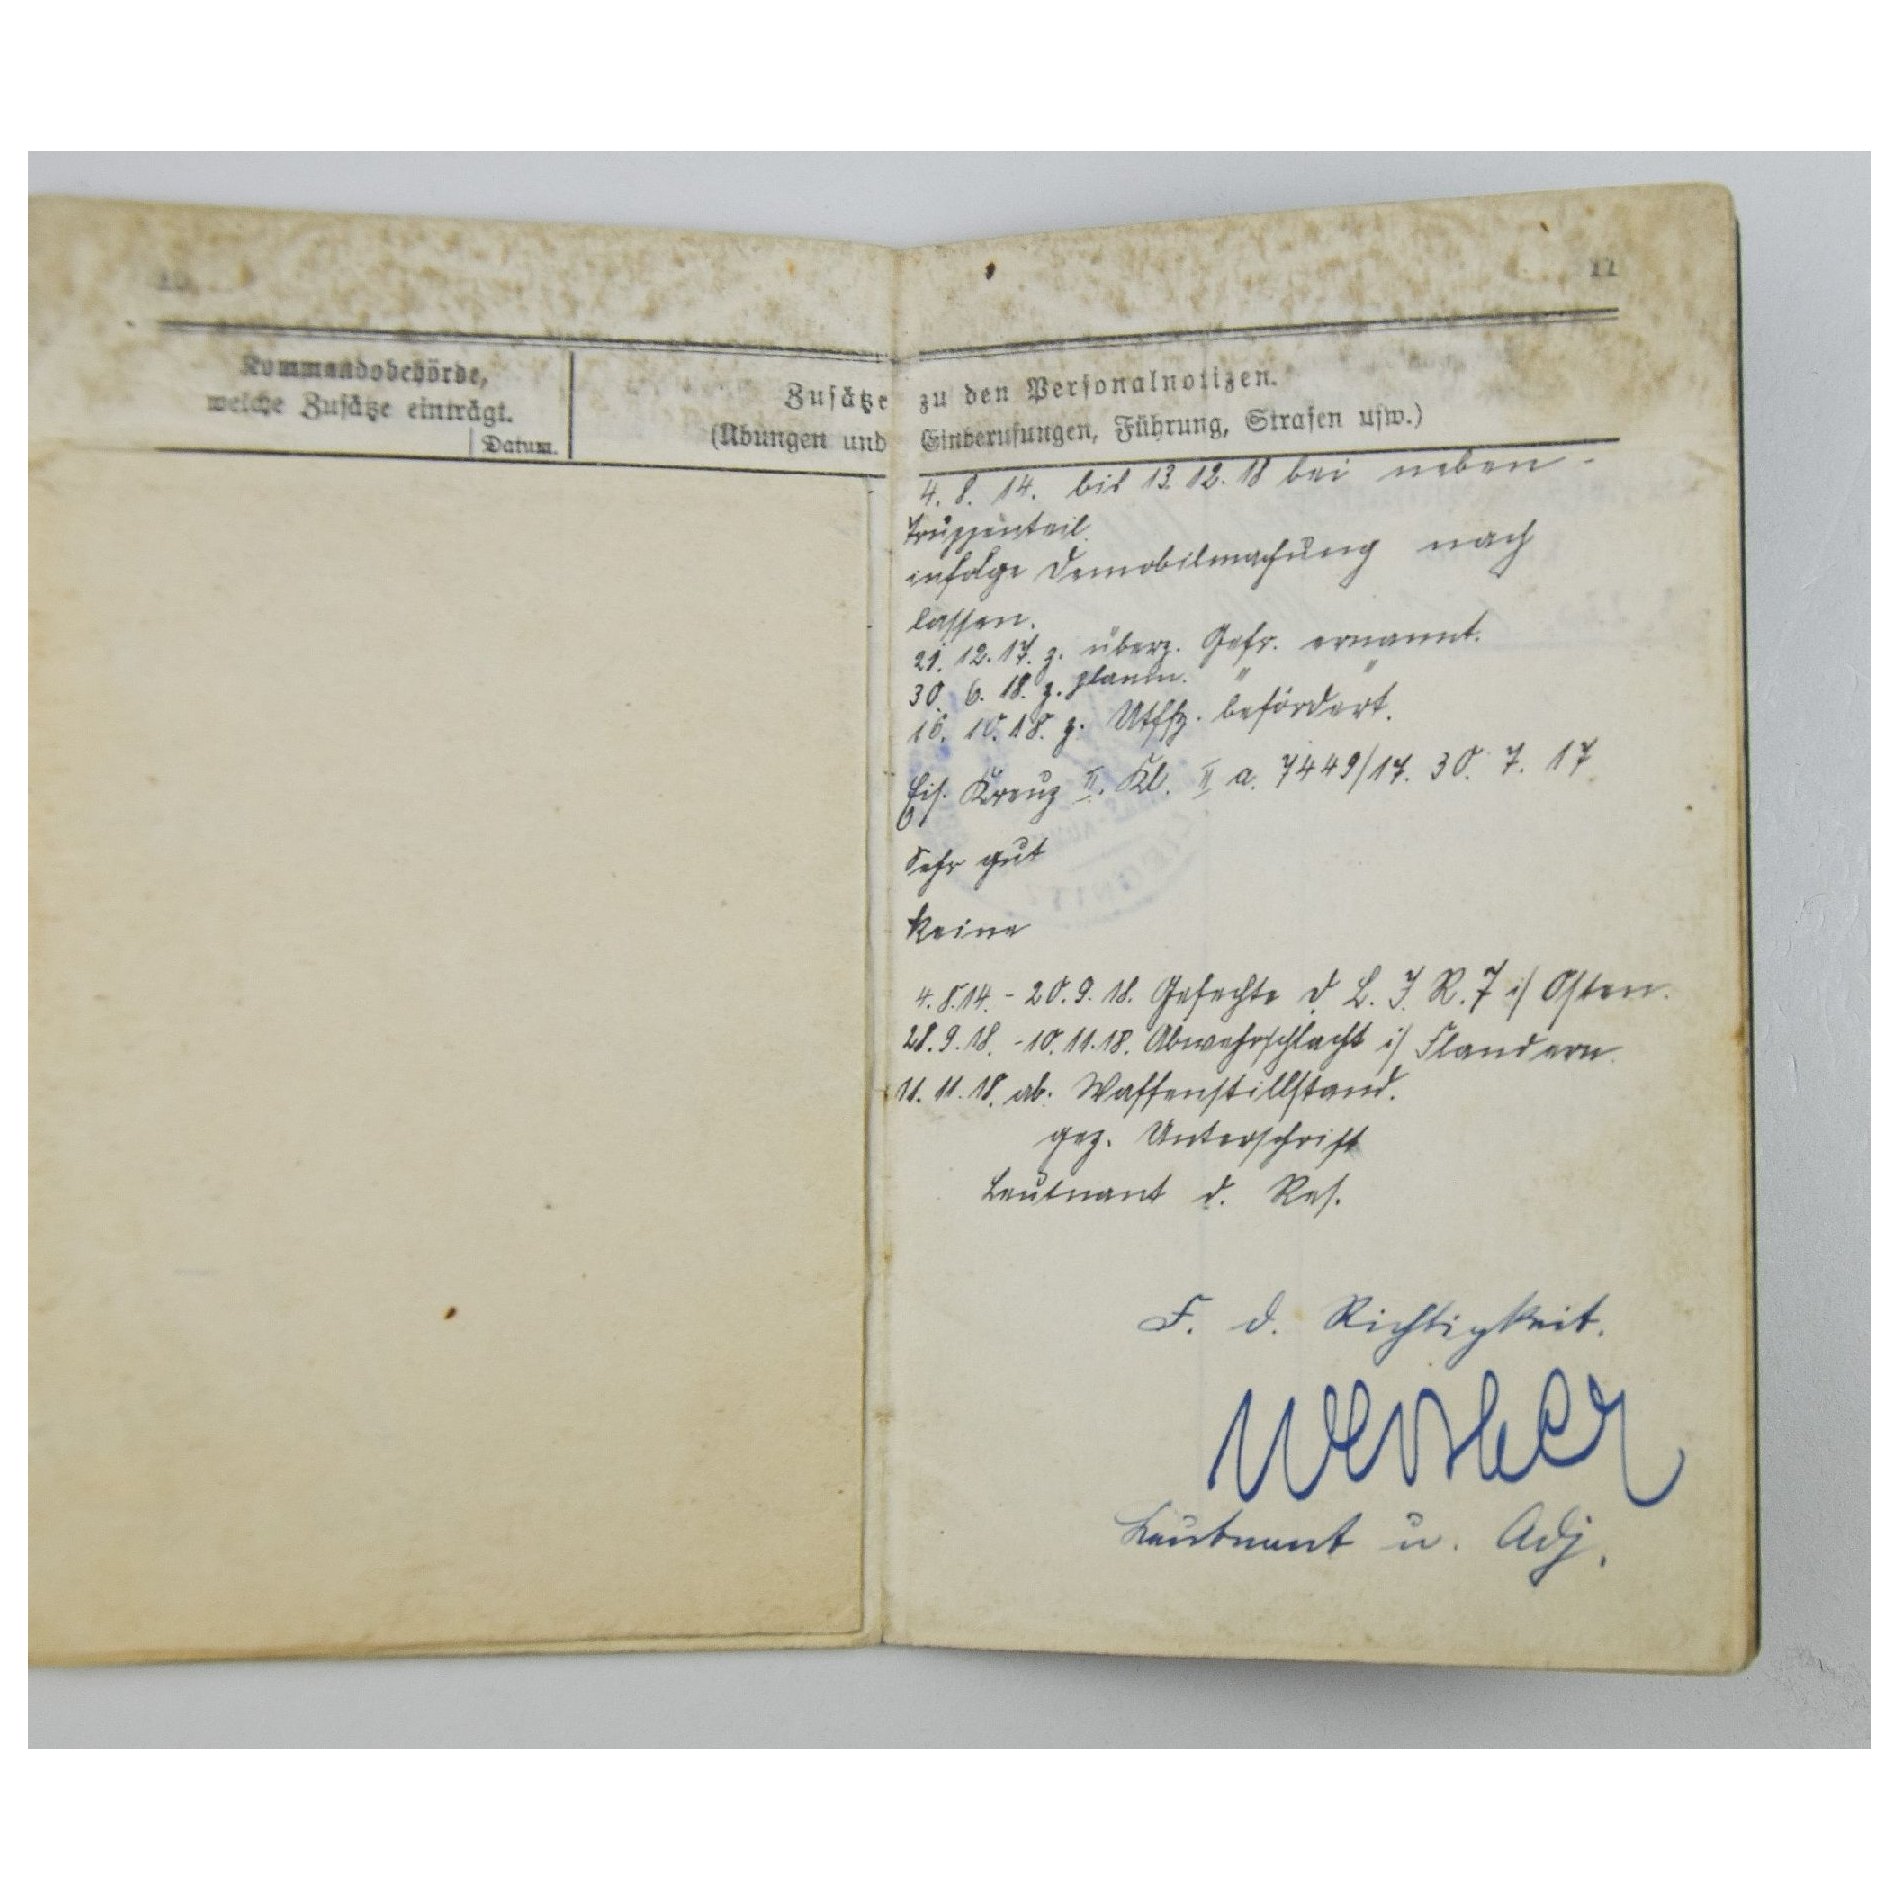 11
Kommandobehörde,
welche Zusätze einträgt.
Datum.
Zusätze zu den Personalnotizen.
(Übungen und Einberufungen, Führung, Strafen usw.)
4. 8. 14. bis 13 12. 18 bei neben-
Truppenteil.
infolge Demobilmachung nach
lassen.
21. 12. 17. z. überz. Gefr. ernannt.
30. 6. 18. z. planm. " "
10. 10. 18. z. Utffz. befördert.
Eis. Kreuz II. Kl. II a. 7449/17. 30. 7. 17
Sehr gut
keine
4. 8. 14. - 20. 9. 18. Gefechte d L. I. R. 7 i/ Osten.
28. 9. 18. - 10. 11. 18. Abwehrschlacht i/ Flandern.
11. 11. 18. ab. Waffenstillstand.
gez. Unterschrift
Leutnant d. Res.
F. d. Richtigkeit.
Leutnant u. Adj.